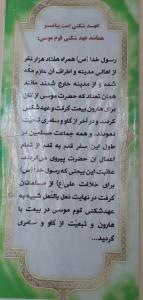 عهد شکنی امت پیامبر
همانند عهد شکنی قوم موسی:
رسول خدا (ص) همراه هفتاد هزار نفر
از اهالی مدینه و اطراف آن عازم مکه
شد و از مدینه خارج شدند مانند
همان تعداد که حضرت موسی از آنان
برای هارون بیعت گرفت و عهدشکنی
کردند. و در آخر از گاو و سامری تبعیت
نمودند. و همه جماعت مسلمین در
طول این سفر قدم به قدم از
اعمال آن حضرت پیروی می‌کردند.
عاقبت این بیعتی که رسول خدا (ص)
برای خلافت علی(ع) از مسلمانان
گرفت در نهایت نعل بالنعل شبیه به
عهدشکنی قوم موسی در بیعت با
هارون و تبعیت از گاو و سامری
گردید...